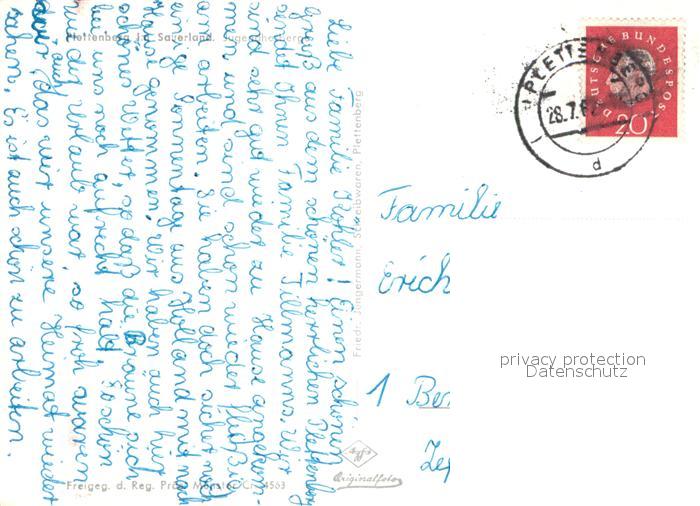 Plettenberg i. Sauerland. Jugendherberge
Liebe Familie Kohler! Einen schönen
Gruß aus dem schönen herrlichen Plettenberg
sendet Ihnen Familie Tillmanns. Wir
sind sehr gut wieder zu Hause angekom-
men und sind schon wieder fleißig
am arbeiten. Sie haben doch sicher noch
einige Sonnentage aus Holland mit nach
Hause genommen. Wir haben auch hier
schönes Wetter, so daß die Bräune sich
bei uns noch aufrecht hält. So schön
wie der Urlaub war, so froh waren
wir auch, das wir unsere Heimat wieder
sahen. Es ist auch schön zu arbeiten.
Friedr. Jüngermann, Schreibwaren, Plettenberg
Freigeg. d. Reg. Präs. Münster Cr. 4563
Agfa
Originalfoto
PLETTENBERG
28.7.6
d
DEUTSCHE BUNDESPOST
20
Familie
Erich
1 Ber
privacy protection
Datenschutz